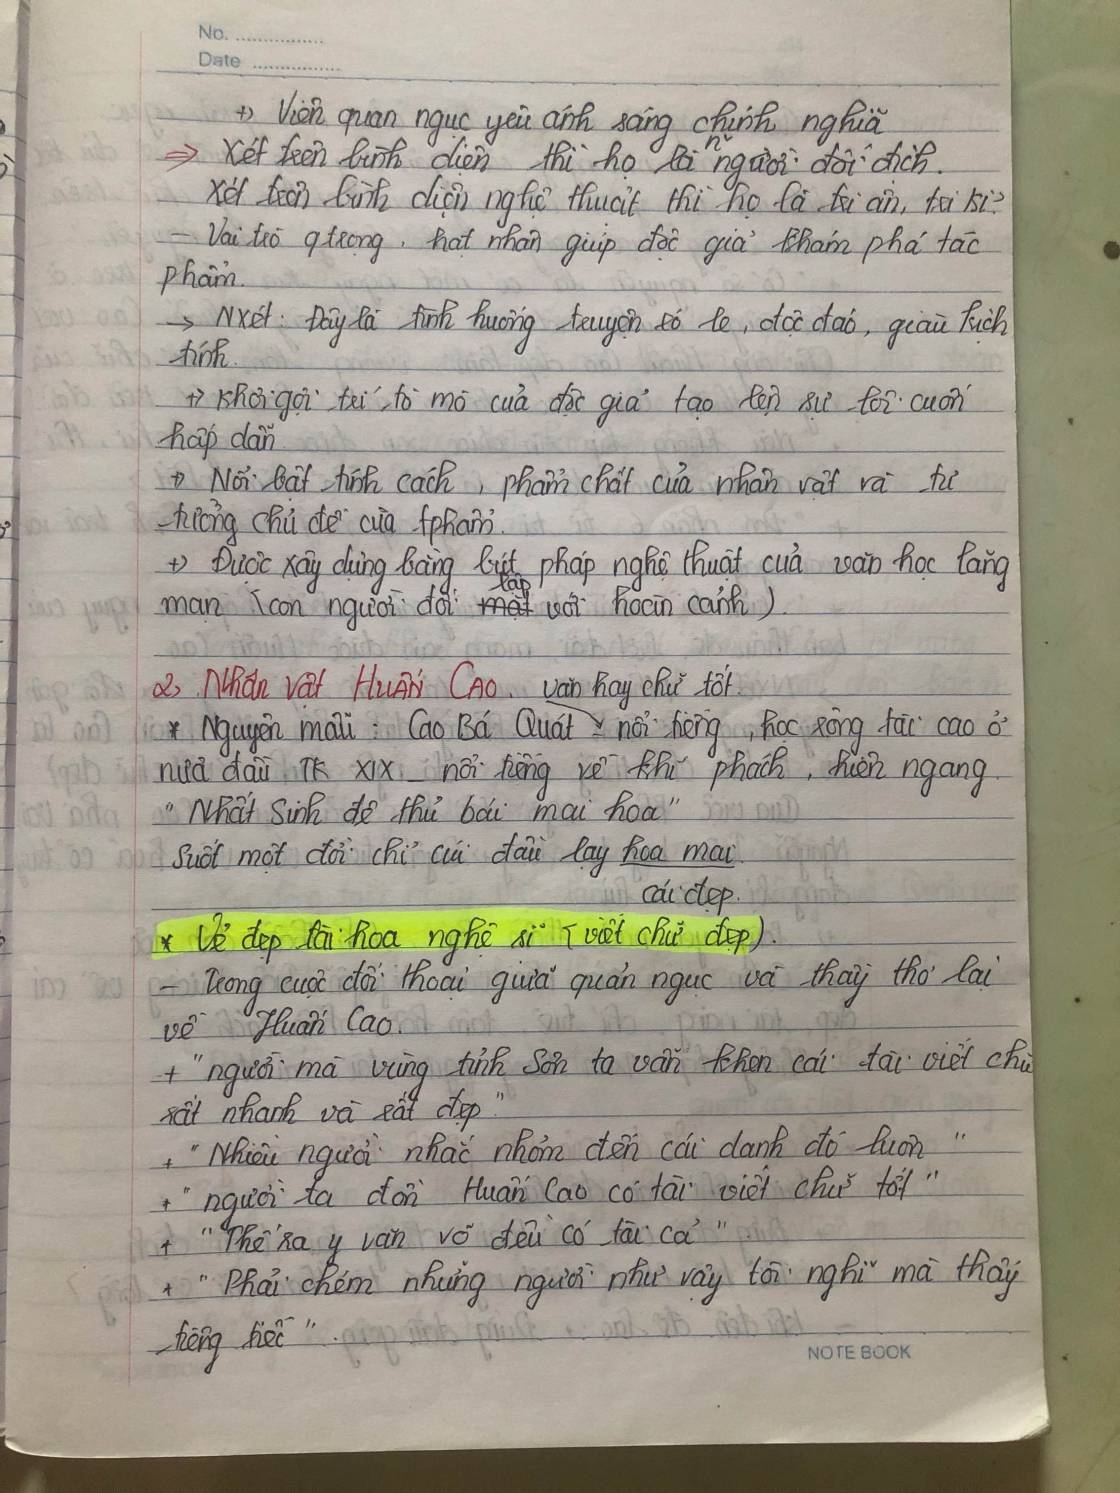 No. ................
Date ................
+) Viên quan ngục yêu ánh sáng chính nghĩa
=> Xét trên bình diện thì họ là n~ người đối địch.
Xét trên bình diện nghệ thuật thì họ là tri ân, tri kỉ.
- Vai trò qtrọng, hạt nhân giúp độc giả khám phá tác
phẩm.
-> Nxét: Đây là tình huống truyện éo le, độc đáo, giàu kịch
tính.
+) Khơi gợi trí tò mò của độc giả tạo lên sự lôi cuốn
hấp dẫn
+) Nổi bật tính cách, phẩm chất của nhân vật và tư
tưởng chủ đề của tphẩm.
+) Được xây dựng bằng bút pháp nghệ thuật của văn học lãng
mạn (con người đối lập với hoàn cảnh).
2) Nhân vật HUẤN CAO. văn hay chữ tốt.
* Nguyên mẫu: Cao Bá Quát nổi tiếng, học rộng tài cao ở
nửa đầu TK XIX - nổi tiếng về khí phách, hiên ngang
"Nhất Sinh đê thủ bái mai hoa"
Suốt một đời chỉ cúi đầu lạy hoa mai.
cái đẹp.
* Vẻ đẹp tài hoa nghệ sĩ (viết chữ đẹp).
- Trong cuộc đối thoại giữa quản ngục và thầy thơ lại
về Huấn Cao.
+ "người mà vùng tỉnh Sơn ta vẫn khen cái tài viết chữ
rất nhanh và rất đẹp"
+ "Nhiều người nhắc nhỏm đến cái danh đó luôn"
+ "người ta đồn Huấn Cao có tài viết chữ tốt"
+ "Thế ra y văn võ đều có tài cả".
+ "Phải chém những người như vậy tôi nghĩ mà thấy
tiêng tiếc".
NOTE BOOK